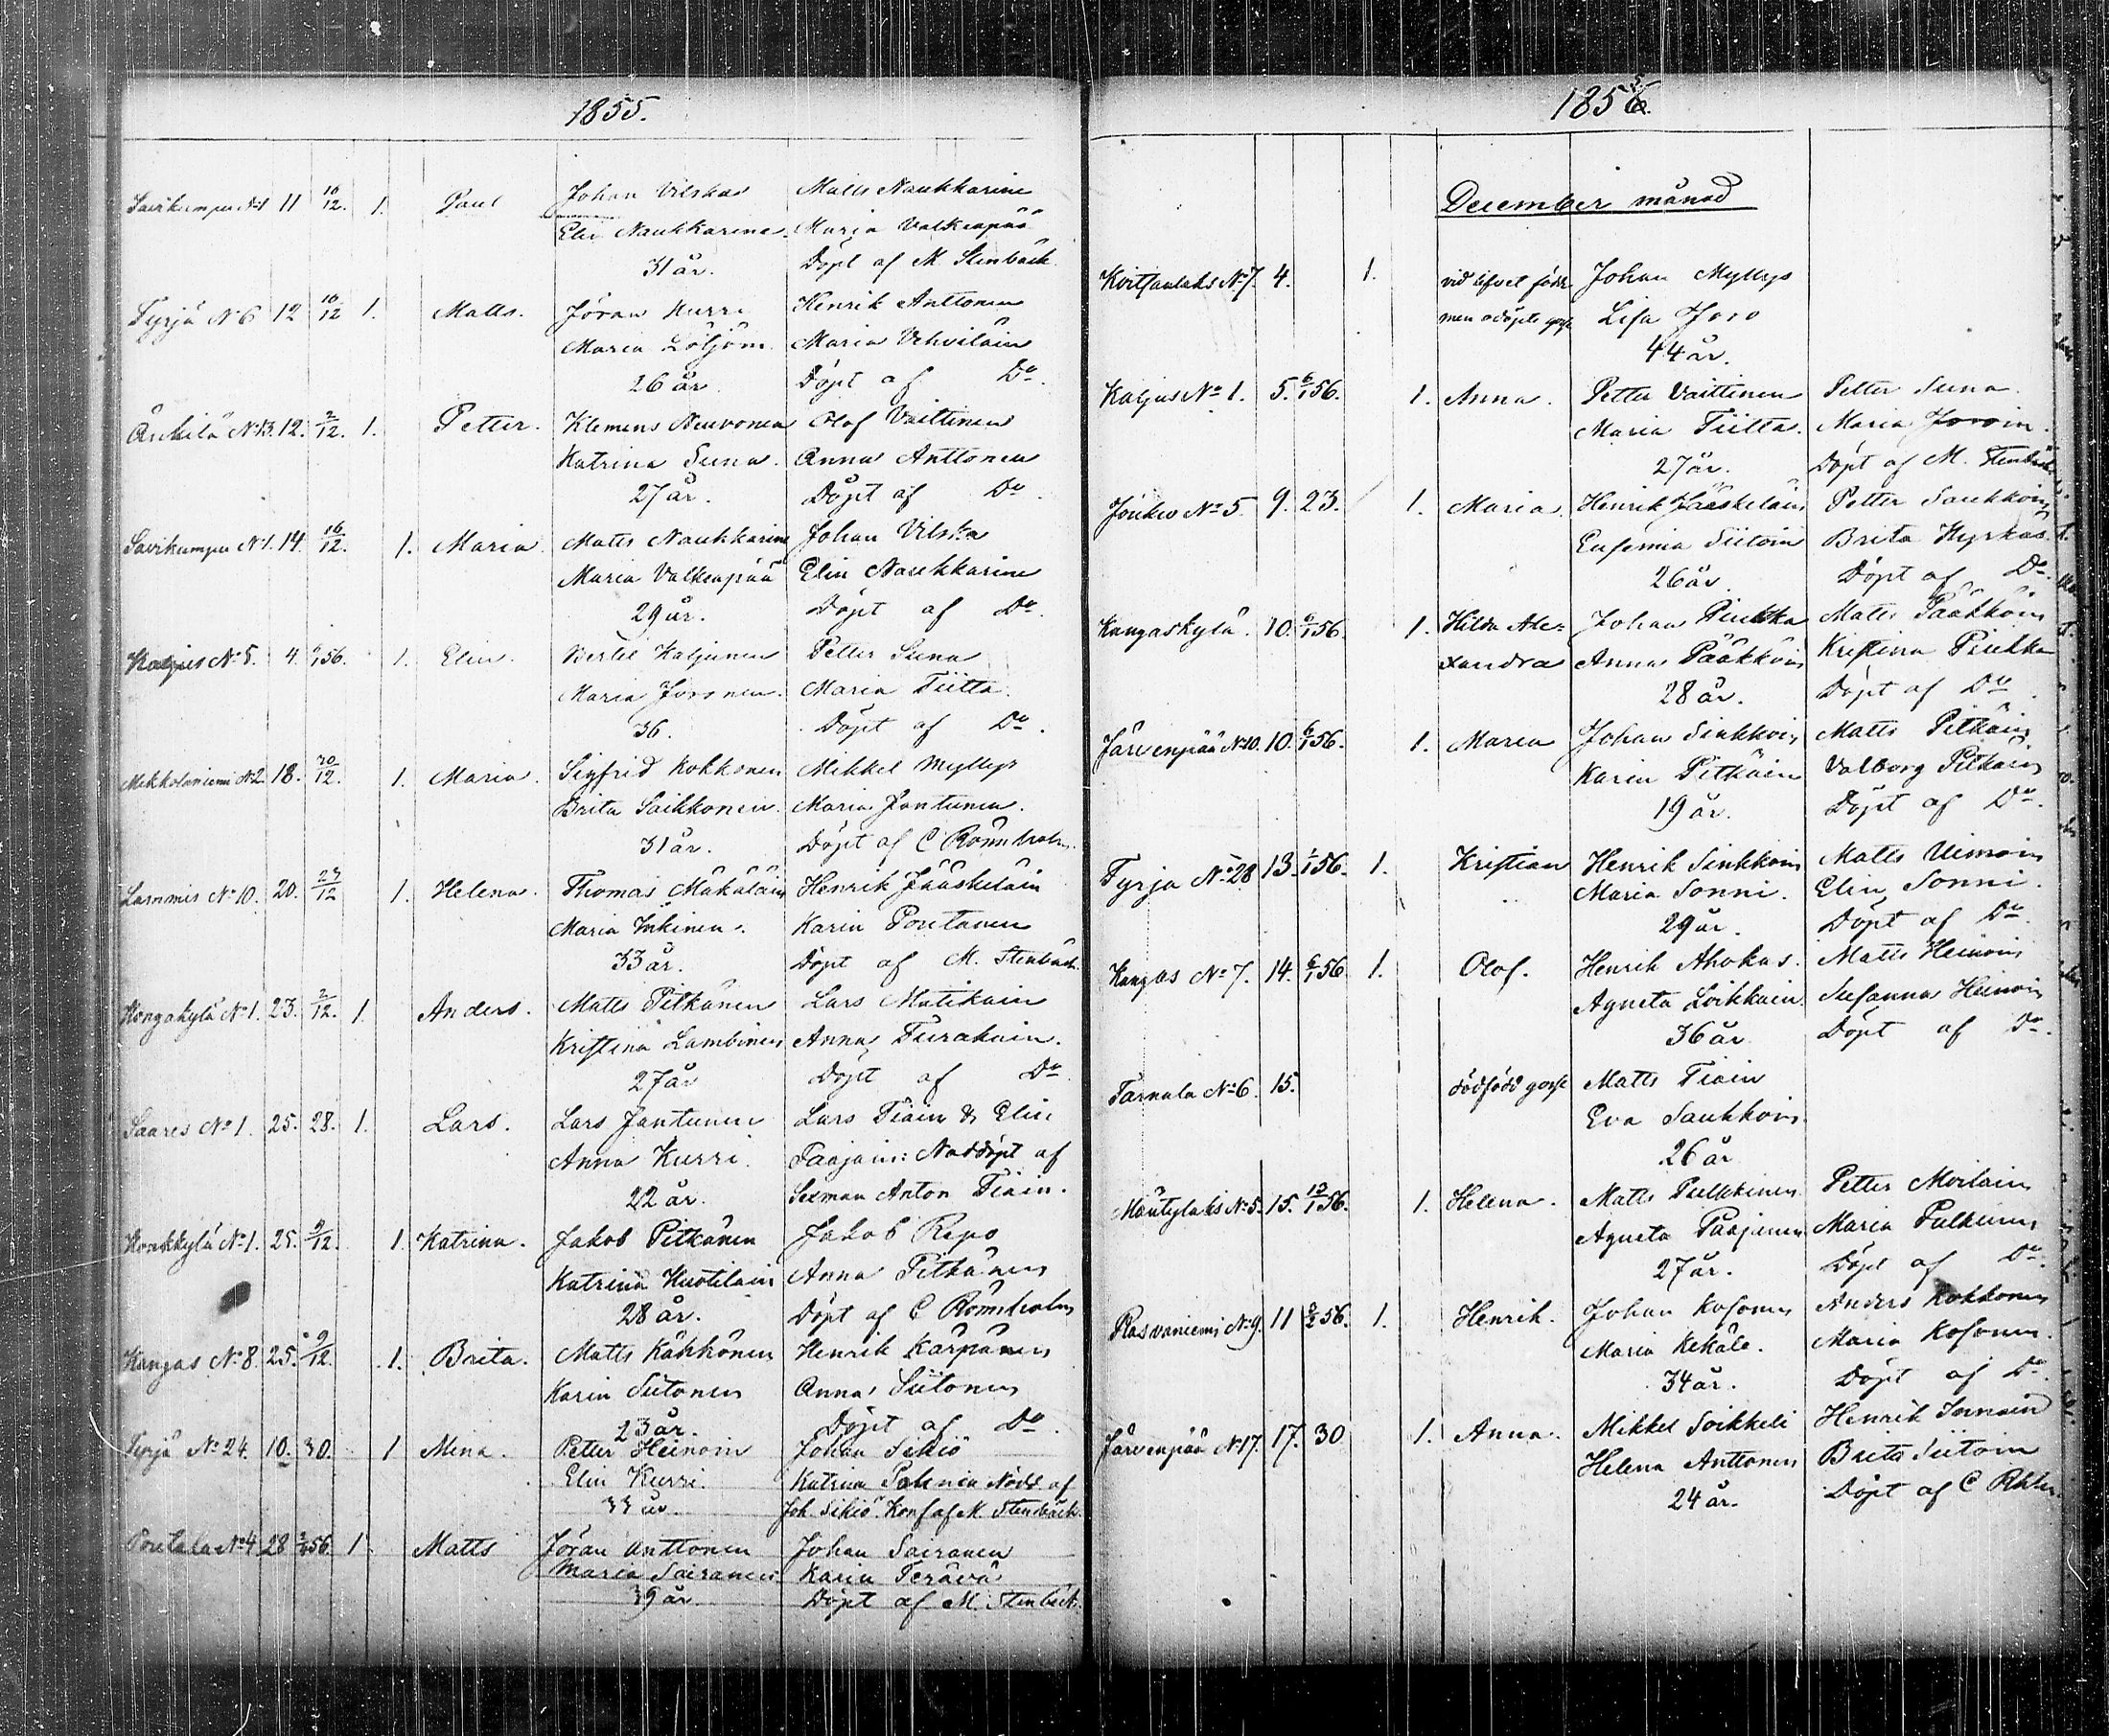 1855.
Savikumpu No 1 11 16/12. 1. Paul Johan Vilska Matts Naukkarine
Elin Naukkarine. Maria Valkeapää
31 år. Döpt af M. Stenbäck
Tyrjä No 6 12 16/12 1. Matts. Jöran Kurri Henrik Anttonen
Maria Löljöm Maria Vehviläin
26 år. Döpt af Do.
Änkilä No 13. 12. 2/12. 1. Petter. Klemens Neuvonen Olof Vaittinen
Katrina Suna. Anna Anttonen
27 år. Döpt af Do.
Savikumpu No 1. 14. 16/12. 1. Maria Matts Naukkarine Johan Vilska
Maria Valkeapää Elin Naukkarine
29 år. Döpt af Do.
Kaljus No 5. 4. 6/1 56. 1. Elin. Bertil Kaljunen Petter Suna
Maria Joronen. Maria Tiitta.
36. Döpt af Do.
Mikkolaniemi No 2. 18. 30/12. 1. Maria. Sigfrid Kokkonen Mikkel Myllys
Brita Saikkonen. Maria Jantunen.
31 år. Döpt af C Rönnholm.
Lammis No 10. 20. 23/12 1. Helena. Thomas Mäkäläin Henrik Jääskeläin
Maria Inkinen. Karin Poutanen
33 år. Döpt af M. Stenbäck.
Kongakylä No 1. 23. 2/12. 1. Anders. Matts Pitkänen Lars Matikain
Kristina Lambinen Anna Turakain.
27 år Döpt af Do
Saares No 1. 25. 28. 1. Lars. Lars Jantunen Lars Tiain & Elin
Anna Kurri. Paajain: Nöddöpt af
22 år. Sexman Anton Tiain.
Konkkylä No 1. 25. 9/12. 1 Katrina. Jakob Pitkänen Jakob Repo
Katrina Huotilain Anna Pitkänen
28 år. Döpt af C Rönnholm
Kangas No 8. 25. 9/12. 1. Brita. Matts Kähkönen Henrik Kärpänen
Karin Siitonen Anna Siitonen
23 år. Döpt af Do.
Tyrjä No 24. 10. 30. 1 Mina. Petter Heinoin Johan Sikiö
Elin Kurri. Katrina Nödd af
33 år Joh. Sikiö. Konf af M. Stenbäck.
Poutala No 4 28 2/2 56. 1 Matts Jöran Anttonen Johan Sairanen
Maria Sairanen Karin Terävä
39 år. Döpt af M. Stenbäck.
1855.
December månad
Koitsanlaks No 7. 4. 1. vid lifvet född Johan Myllys
men odöpt gosse Lisa Joro
44 år.
Kaljus No 1. 5. 6/1 56. 1. Anna. Petter Vaittinen Petter Suna
Maria Tiitta. Maria Joroin.
27 år. Döpt af M. Stenbäck
Jouhio No 5 9. 23. 1. Maria. Henrik Jääskeläin Petter Saukkoin
Eufemia Siitoin Brita Hyrkäs.
26 år Döpt af Do.
Kangaskylä. 10. 6/1 56. 1. Hilda Ale= Johan Piukka Matts Pääkköin
xandra Anna Pääkköin Kristina Piukka
28 år. Döpt af Do
Järvenpää No 10. 10. 6/1 56. 1. Maria Johan Sinkkoin Matts Pitkäin
Karin Pitkäin Valborg Pitkäin
19 år. Döpt af Do.
Tyrja No 28 13. 1/1 56. 1. Kristian Henrik Sinkkoin Matts Uimoin
Maria Sonni. Elin Sonni.
29 år. Döpt af Do.
Kangas No 7. 14. 6/1 56 1. Olof. Henrik Ahokas. Matts Heinoin
Agneta Loikkain. Susanna Heinoin
36 år Döpt af Do.
Tarnala No 6. 15. dödfödd gosse Matts Tiain
Eva Saukkoin.
26 år
Mäntylaks No 5. 15. 12/1 56. 1. Helena. Matts Pulkkinen Petter Moilain
Agneta Paajanen Maria Pulkinen
27 år. Döpt af Do.
Rasvaniemi No 9. 11 2/2 56. 1. Henrik. Johan Kosonen Anders Kokkonen
Maria Kekäle. Maria Kosonen.
34 år. Döpt af Do.
Järvenpää No 17. 17. 30 1. Anna. Mikkel Soikkeli Henrik Innain
Helena Anttonen Brita Siitoin
24 år. Döpt af C